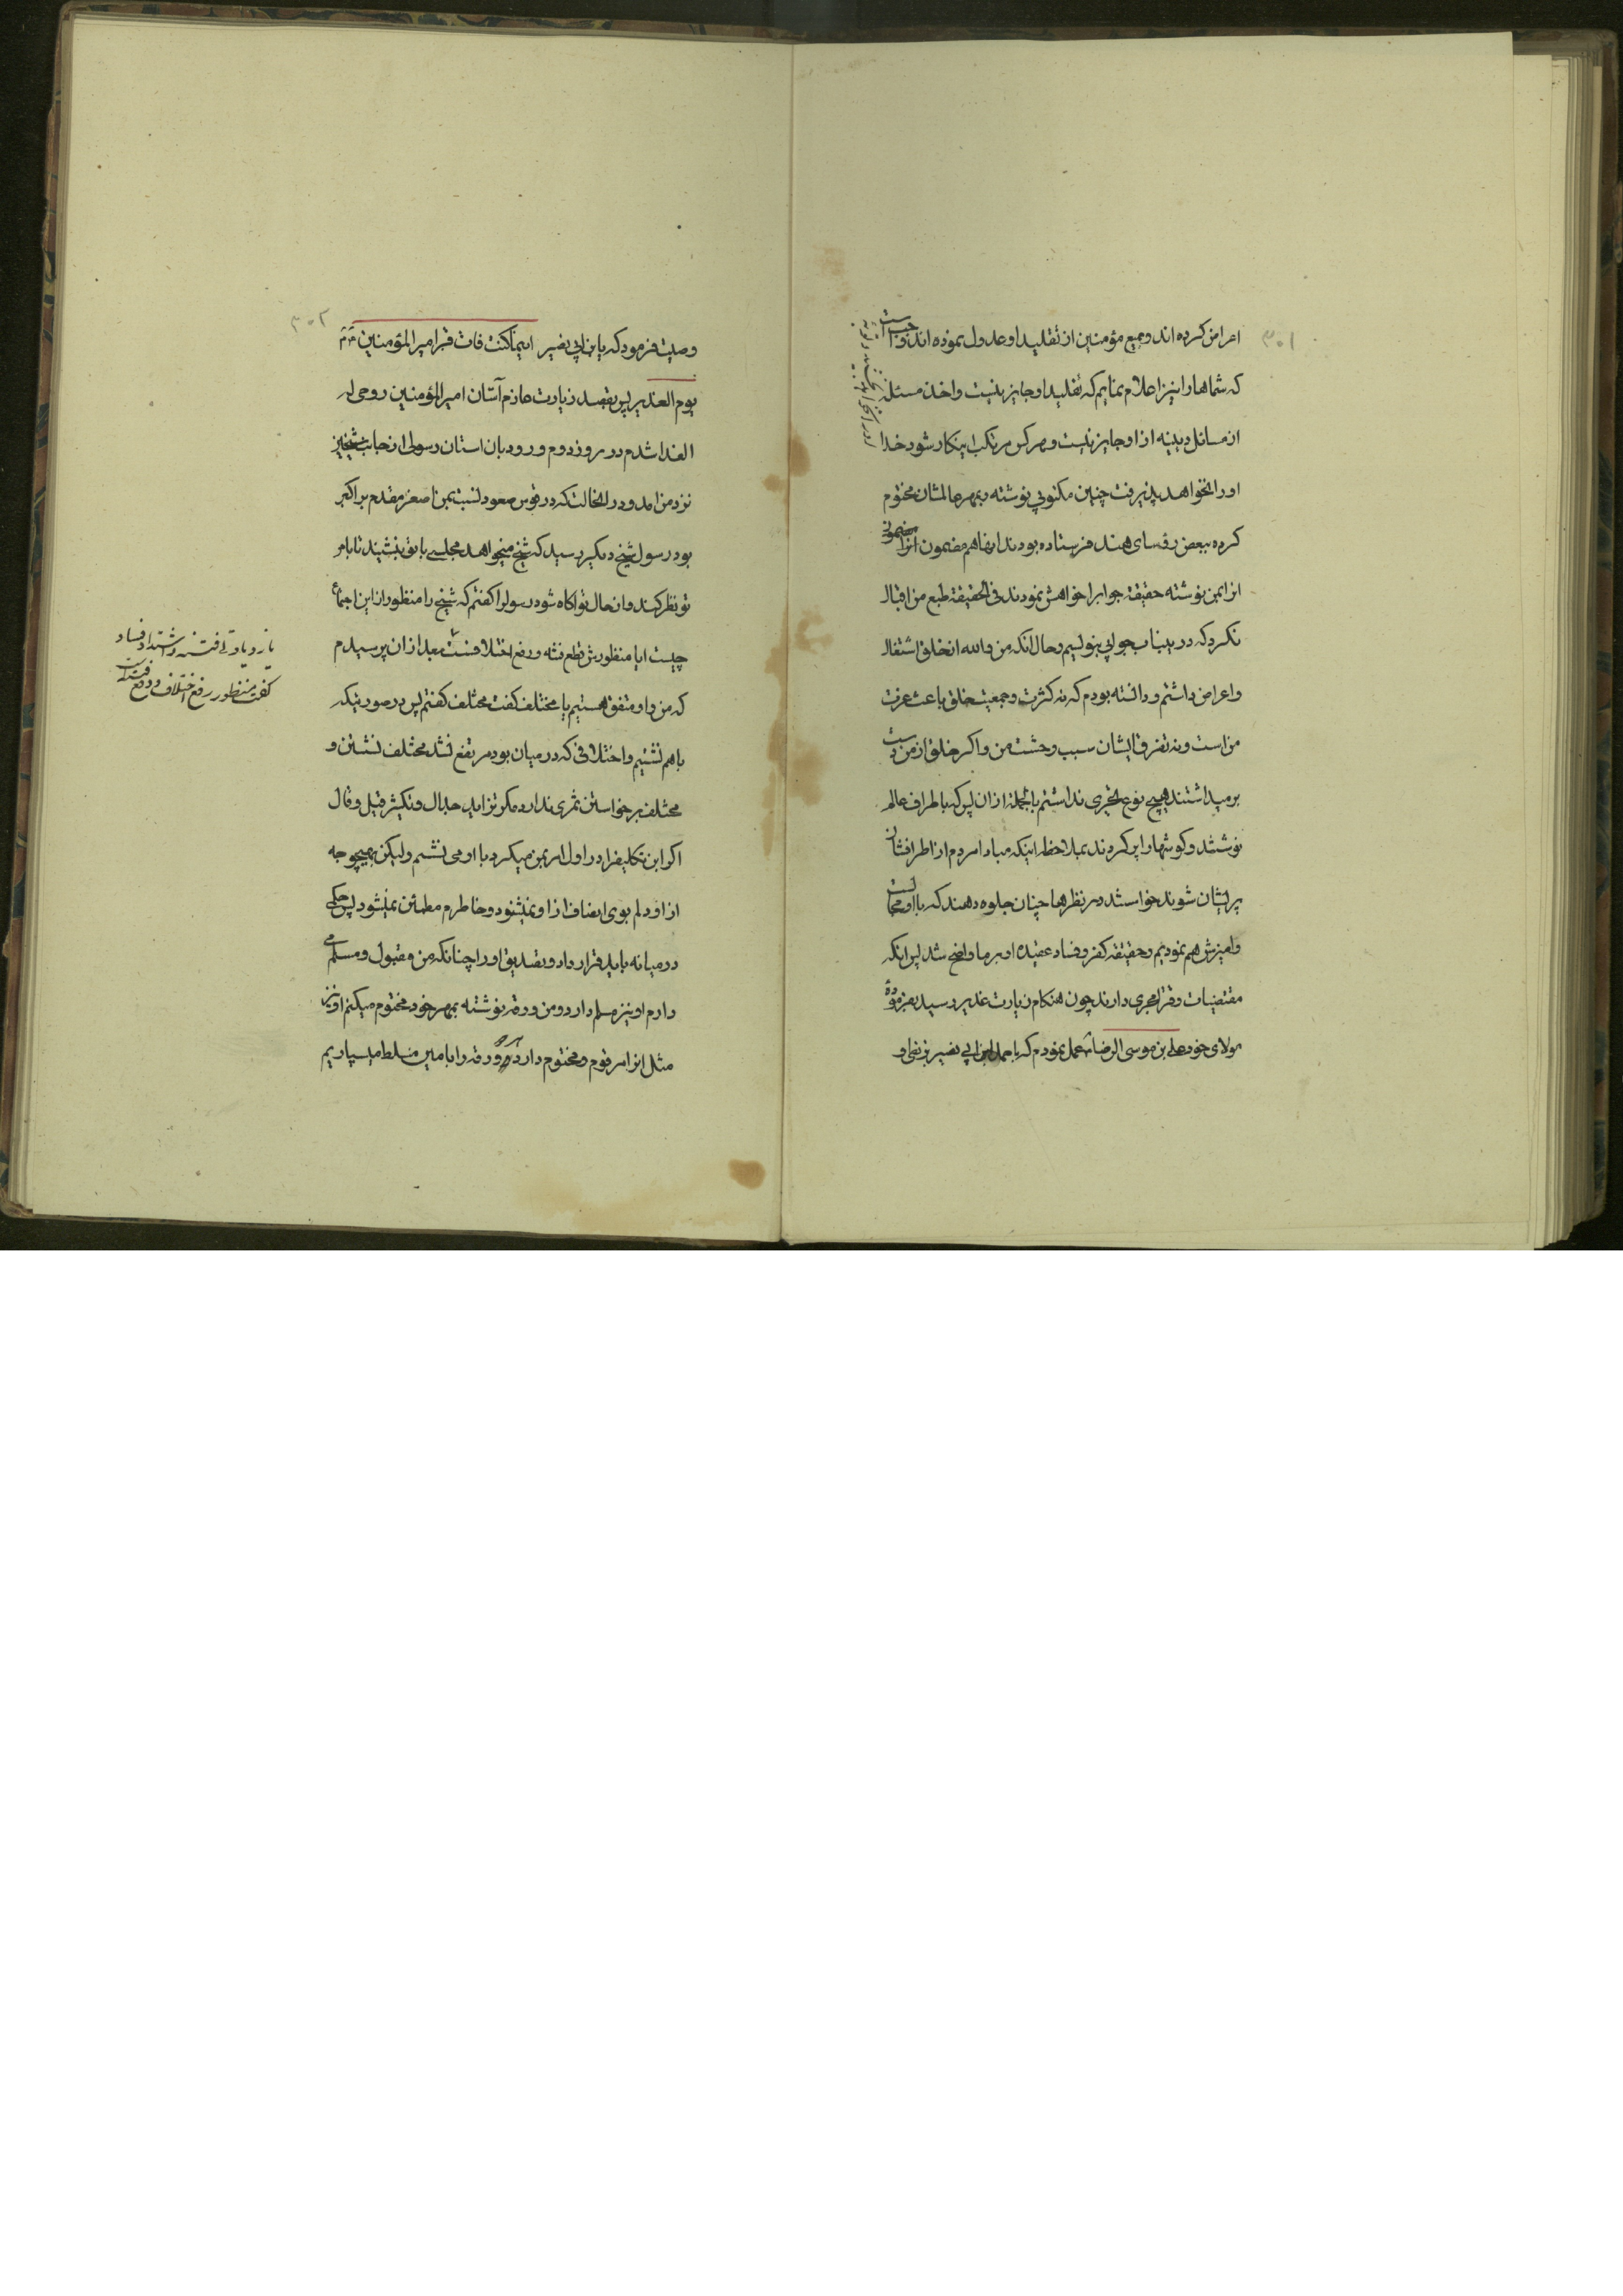 ۳۰۱
اعراض کرده اند و جمیع مؤمنین از تقلید او عدول نموده اند و واجب است
که شماها را نیز اعلام نمایم که تقلید او جایز نیست و اخذ مسئله
از مسائل دینیه از او جایز نیست و هر کس مرتکب اینکار شود خدا
او را نخواهد پذیرفت چنین مکتوبی نوشته و بمهر عالمشان مختوم
کرده ببعض رؤسای هند فرستاده بودند ایضا هم مضمون آنرا
از این نوشته حقیقة جوابرا خواهش نمودند فی الحقیقة طبع من اقبال
نکرد که در ینباب جوابی بنویسم و حال آنکه من والله از خلق اشتغال
و اعراض داشتم و دانسته بودم که نه کثرت و جمعیت خلق باعث عزت
من است و نه تفرق ایشان سبب وحشت من و اگر خلق از من دست
بر میداشتند هیچ نوع تحیری نداشتم بالجمله از ان پس که باطراف عالم
نوشتند و گوشها را پر کردند بملاحظه اینکه مبادا مردم از اطرافشان
پریشان شوند خواستند در نظرها چنان جلوه دهند که با او مجالست
و امیزش هم نمودیم و حقیقة کفر و فساد عقیده او بر ما واضح شد پس انکه
مقتضیات دفتر مجری دارند چون هنکام زیارت غدیر رسید بفرموده
مولای خود علی بن موسی الرضا عمل نمودم که با حمد بن ابی نصیر بزنطی او
۳۰۲
وصیت فرمود که یا بن ابی نصیر اینما کنت فات قبر امیر المؤمنین
یوم الغدیر پس بقصد زیارت عازم آستان امیر المؤمنین روحی له
الفدا شدم در روز دوم ورود بان استان رسولی از جانب شیخین
نزد من امد و در انحالت که در قوس صعود نسبت بمن اصغر مقدم بر اکبر
بود رسول شیخ دیگر رسید که شیخ میخواهد مجلسی با تو بنشیند تا بامر
تو نظر کند و از حال تو اکاه شود رسولرا کفتم که شیخ را منظور از این اجتماع
چیست ایا منظورش قطع فتنه و رفع اختلافست بعد از ان پرسیدم
که من و او متفق هستیم یا مختلف کفت مختلف کفتم پس در صورتیکه
باهم نشینیم و اختلافی که در میان بود مرتفع نشد مختلف نشستن و
مختلف برخواستن ثمری ندارد مکر تزاید جدال و تکثیر قیل و قال
اکر این تکلیفرا در اول امر بمن میکرد با او می نشستم ولیکن بهیچوجه
از او دلم بوی انصاف از او نمیشنود و خاطرم مطمئن نمیشود پس حکمی
در میانه باید قرار داد و تصدیق او را چنانکه من مقبول و مسلم می
دارم او نیز مسلم دارد و من ورقه نوشته بمهر خود مختوم میکنم او نیز
مثل انرا مرقوم و مختوم دارد ورقه را بامین مسلط میسپاریم
یا زیادتی فتنه و اشتداد فساد
کفت منظور رفع اختلاف و دفع فتنه است